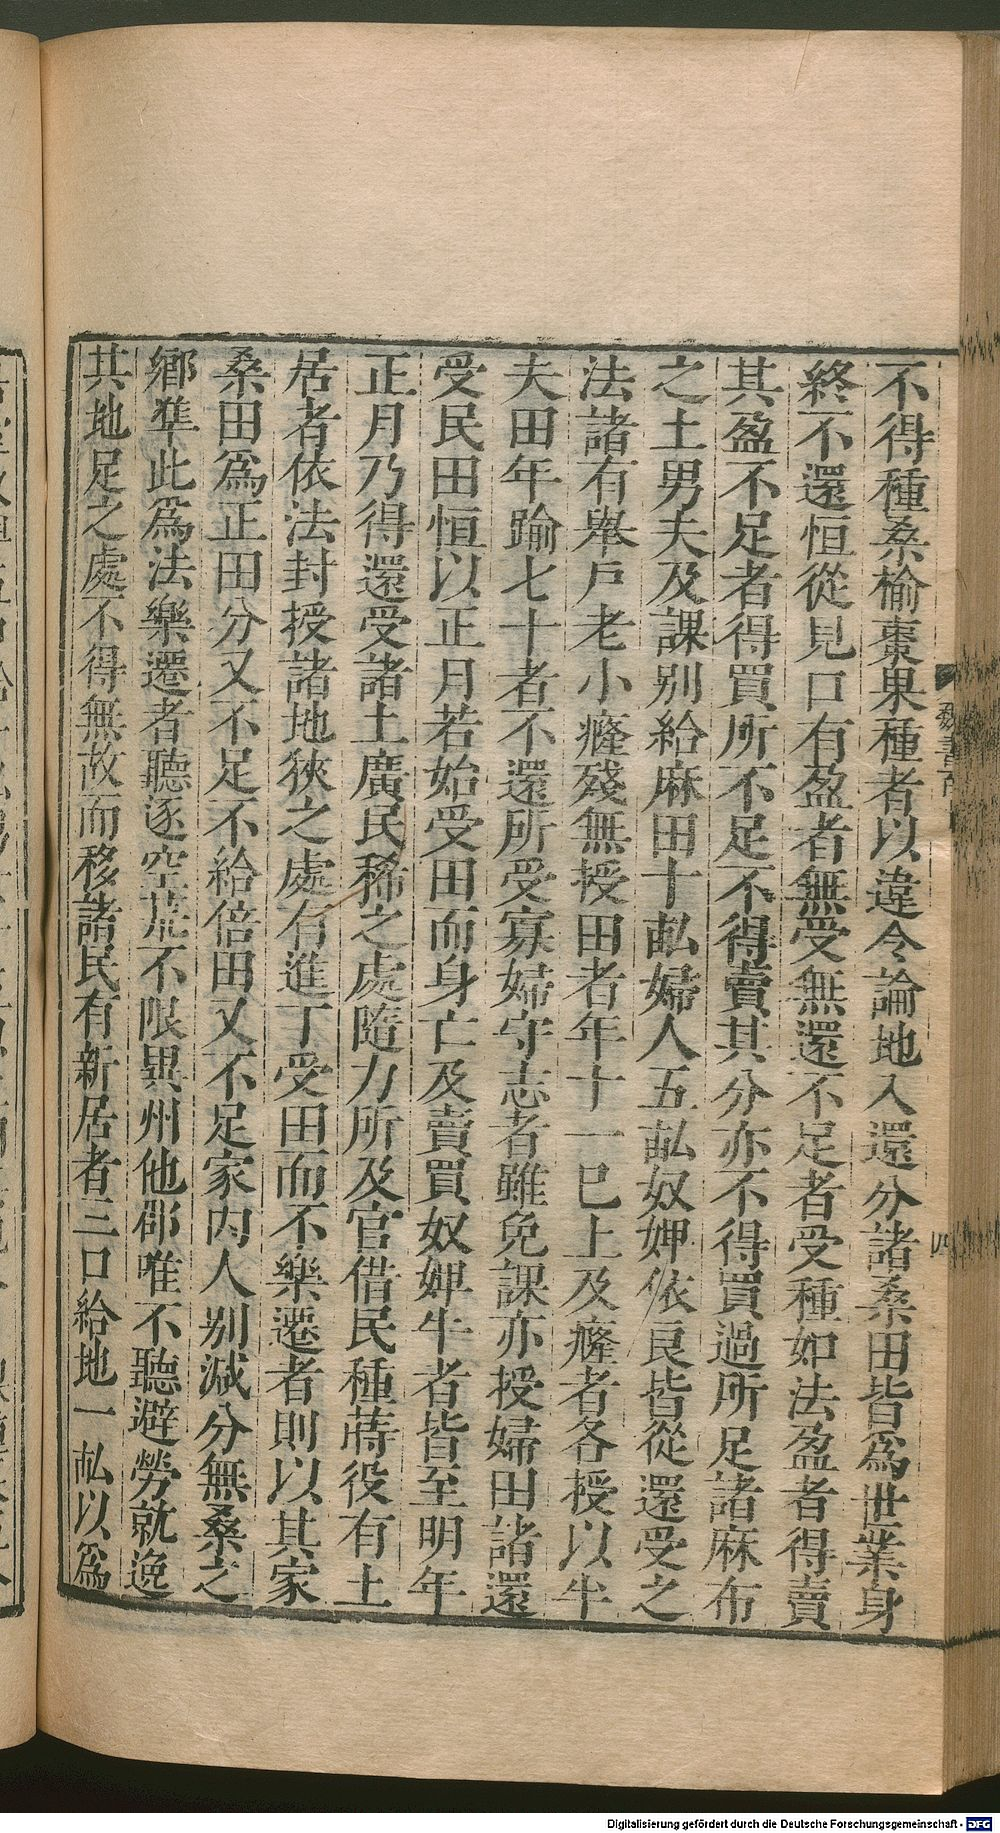 不得種桑榆棗果種者以違令論地入還分諸桑田皆爲世業身
終不還恒從見口有盈者無受無還不足者受種如法盈者得賣
其盈不足者得買所不足不得賣其分亦不得買過所足諸麻布
之土男夫及課別給麻田十畝婦人五畝奴婢依良皆從還受之
法諸有舉戶老小癃殘無授田者年十一已上及癃者各授以半
夫田年踰七十者不還所受寡婦守志者雖免課亦授婦田諸還
受民田恒以正月若始受田而身亡及賣買奴婢牛者皆至明年
正月乃得還受諸土廣民稀之處隨力所及官借民種蒔役有土
居者依法封授諸地狹之處有進丁受田而不樂遷者則以其家
桑田爲正田分又不足不給倍田又不足家內人別減分無桑之
鄉準此爲法樂遷者聽逐空荒不限異州他郡唯不聽避勞就逸
其地足之處不得無故而移諸民有新居者三口給地一畝以爲
魏書百十
四
Digitalisierung gefördert durch die Deutsche Forschungsgemeinschaft - DFG